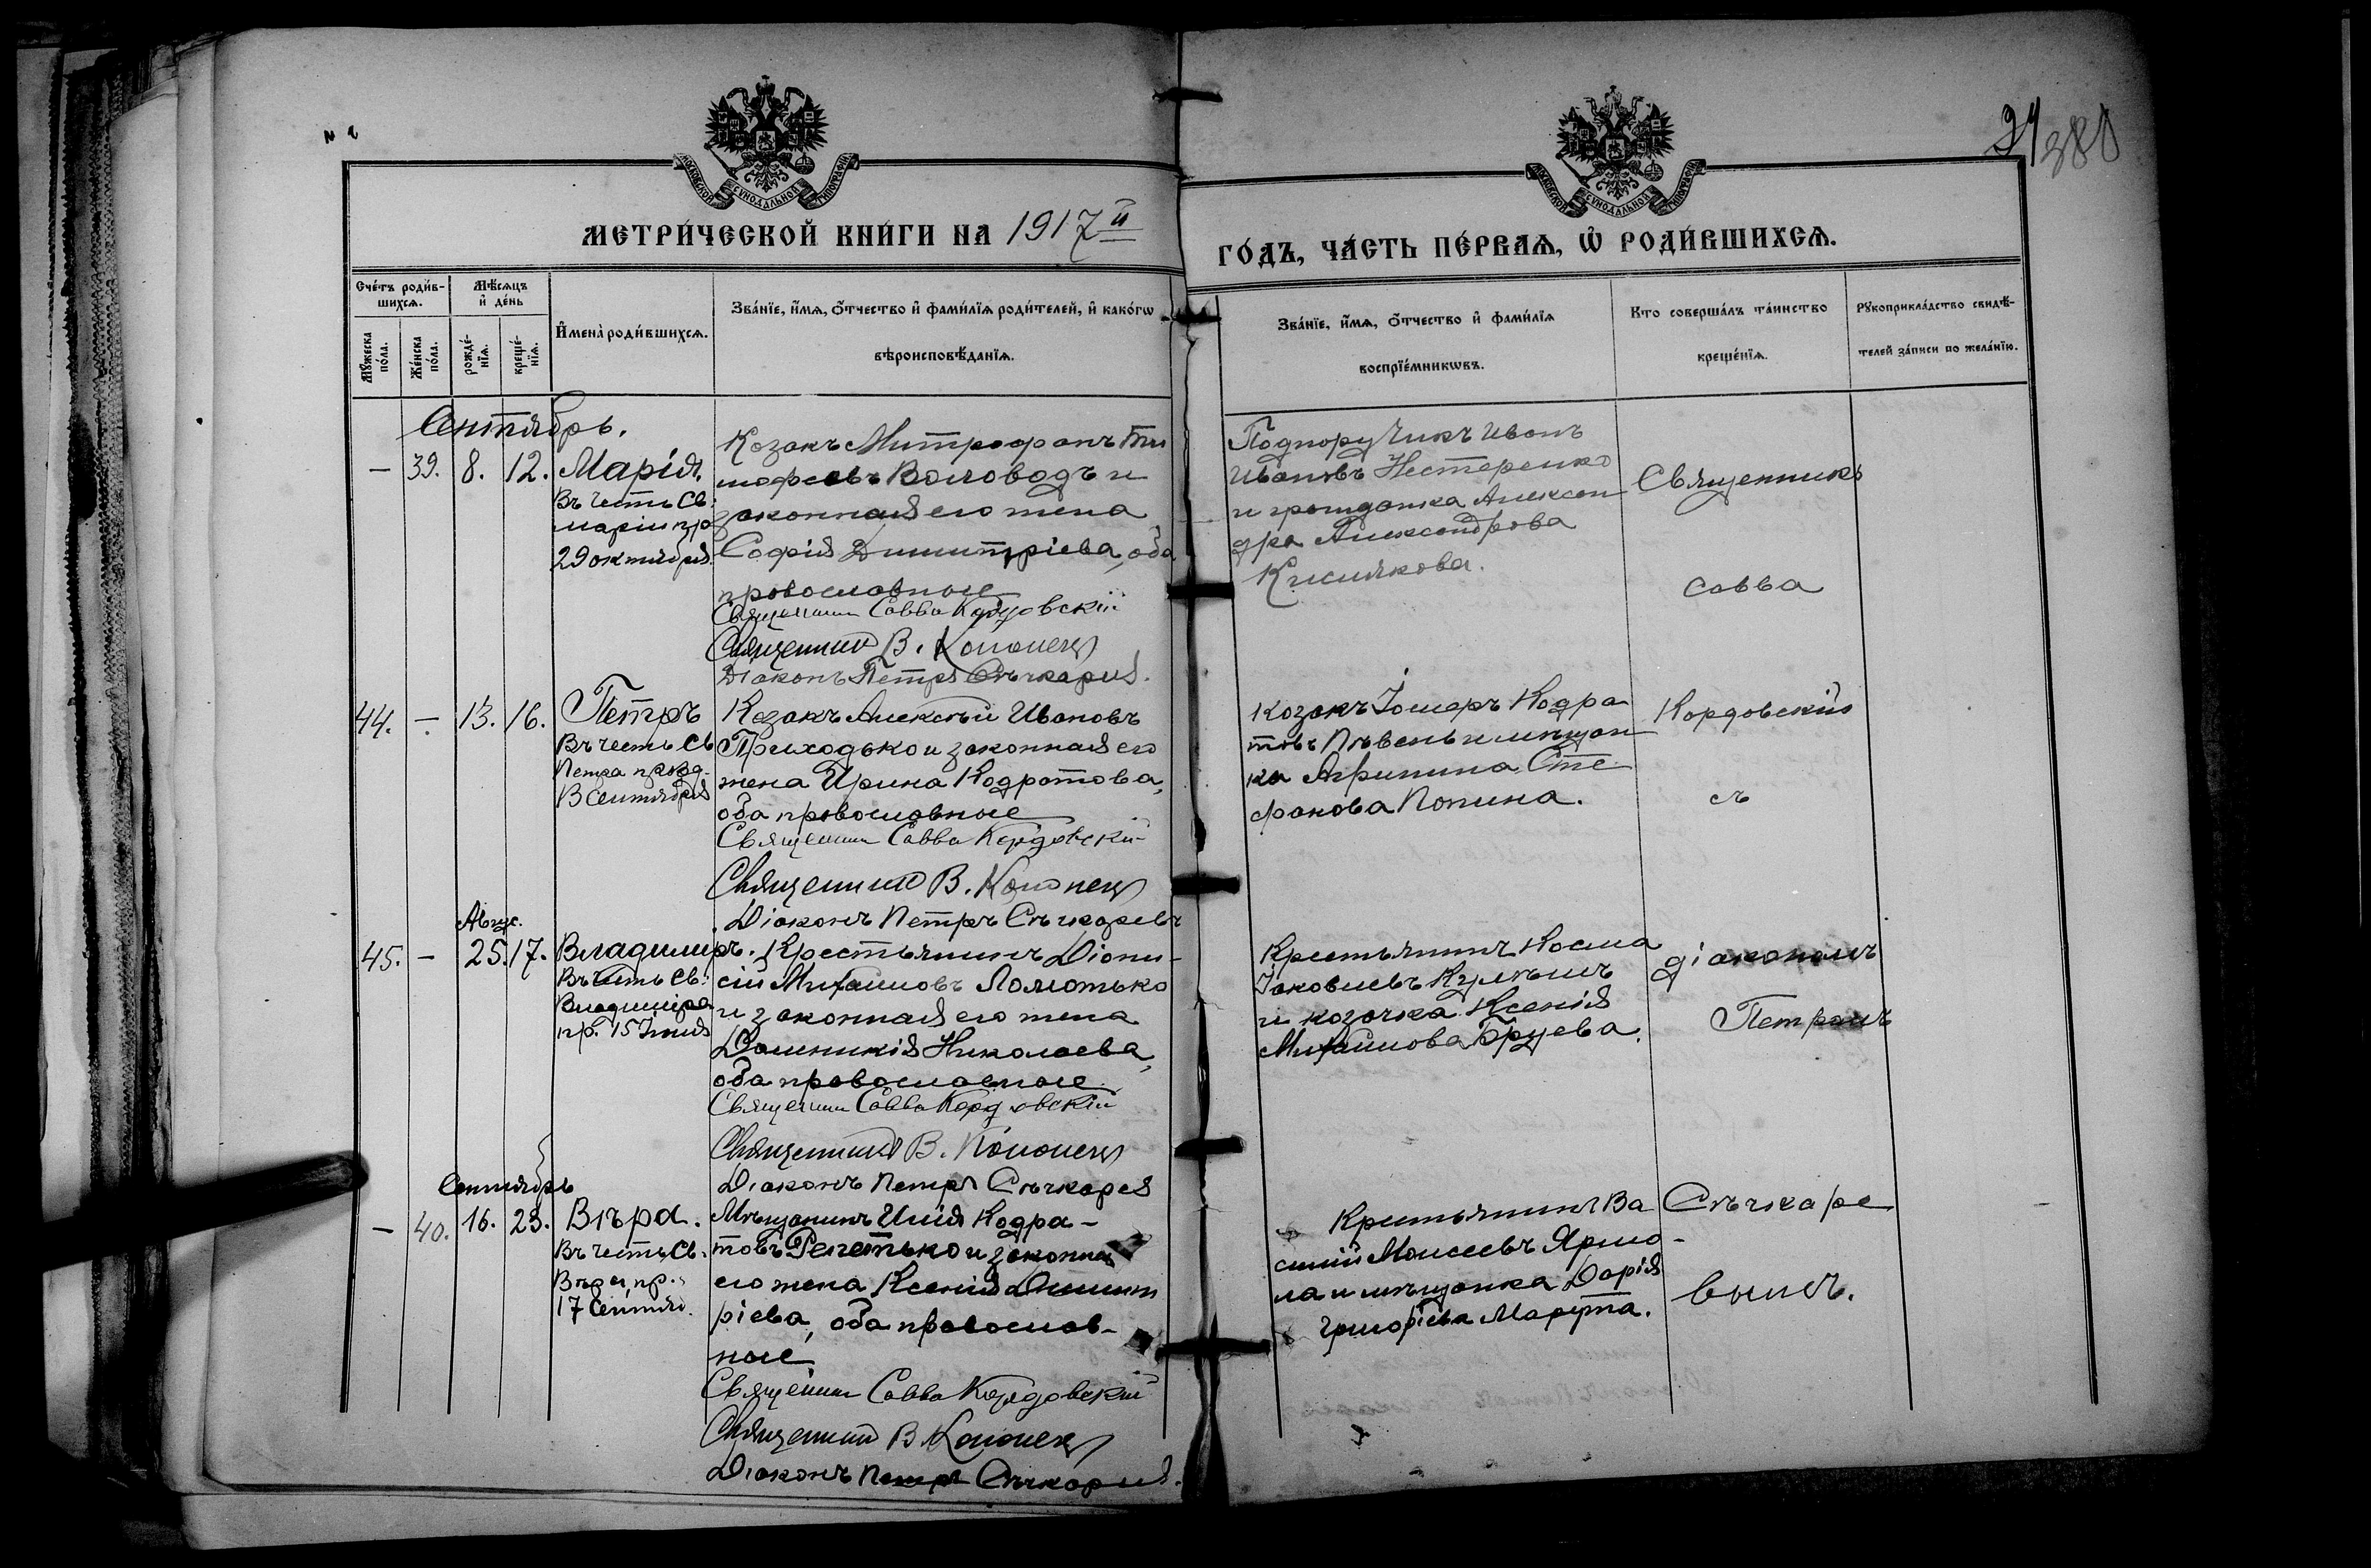 21
380
МОСКОВСКОЙ СУНОДАЛЬНОЙ ТИПОГРАФІИ
МОСКОВСКОЙ СУНОДАЛЬНОЙ ТИПОГРАФІИ
МЕТРИ́ЧЕСКОЙ КНИ́ГИ НА 1917 й
ГО́ДЪ, ЧА́СТЬ ПЕ́РВАѦ, Ѡ҆ РОДИ́ВШИХСѦ.
Сче́тъ роди́в-
шихсѧ.
Мꙋ́жеска по́ла.
Же́нска по́ла.
Мѣ́сѧцъ и҆ де́нь
рожде́-нїѧ.
креще́-нїѧ.
И҆мена̀ роди́вшихсѧ.
Зва́нїе, и҆́мѧ, ѻ҆́тчество и҆ фами́лїѧ роди́телей, и҆ како́гѡ
вѣроисповѣ́данїѧ.
Зва́нїе, и҆́мѧ, ѻ҆́тчество и҆ фами́лїѧ
воспрїе́мникѡвъ.
Кто соверша́лъ та́инство
креще́нїѧ.
Рꙋкоприкла́дство свидѣ́-
телей за́писи по жела́нїю.
Сентябрь.
— 39. 8. 12. Марія.
Въ честь Св.
Маріи пр
29 октября.
Козакъ Митрофанъ Ти
мофеевъ Воловодъ и
законная его жена
Софія Димитріева, оба
православные
Священник Савва Кордовскій
Священник В. Кононец
Діаконъ Петръ Сѣчкарев.
Подпоручикъ Иванъ
Ивановъ Нестеренко
и гражданка Алексан
дра Александрова
Кислякова.
Священникъ
Савва
44. — 13. 16. Петръ
Въ честь Св
Петра празд.
Сентября
Козакъ Алексѣй Ивановъ
Приходько и законная его
жена Ирина Кодратова,
оба православные
Священник Савва Кордовскій
Священник В. Кононец
Діаконъ Петръ Сѣчкаревъ
козакъ Кодра
товъ Пѣвень и мѣщан
ка Агрипина Сте
фанова Попина.
Кордовскій
съ
Авгус.
45. — 25. 17. Владимиръ.
Въ честь Св:
Владиміра
пр. 15 Іюля
Крестьянинъ Діони-
сій Михаиловъ Ломотько
и законная его жена
Домникія Николаева,
оба православные
Священник Савва Кордовскій
Священник В. Кононец
Діаконъ Петръ Сѣчкарев
Крестьянинъ Косма
Іаковлевъ
и козачка Ксенія
Михаилова Бруева.
діакономъ
Петромъ
Сентябрь
— 40. 16. 23. Вѣра.
Въ честь Св.
Вѣры пр.
17 Сентяб.
Мѣщанинъ Илія Кодра-
товъ Репетько и законная
его жена Ксенія Димит
ріева, оба православ-
ные
Священник Савва Кордовскій
Священник В. Кононец
Діаконъ Петръ Сѣчкарев.
Крестьянинъ Ва
силій Моисеевъ Ярмо-
ла и мѣщанка Дарія
Григоріева Марута.
Сѣчкаре
вымъ.